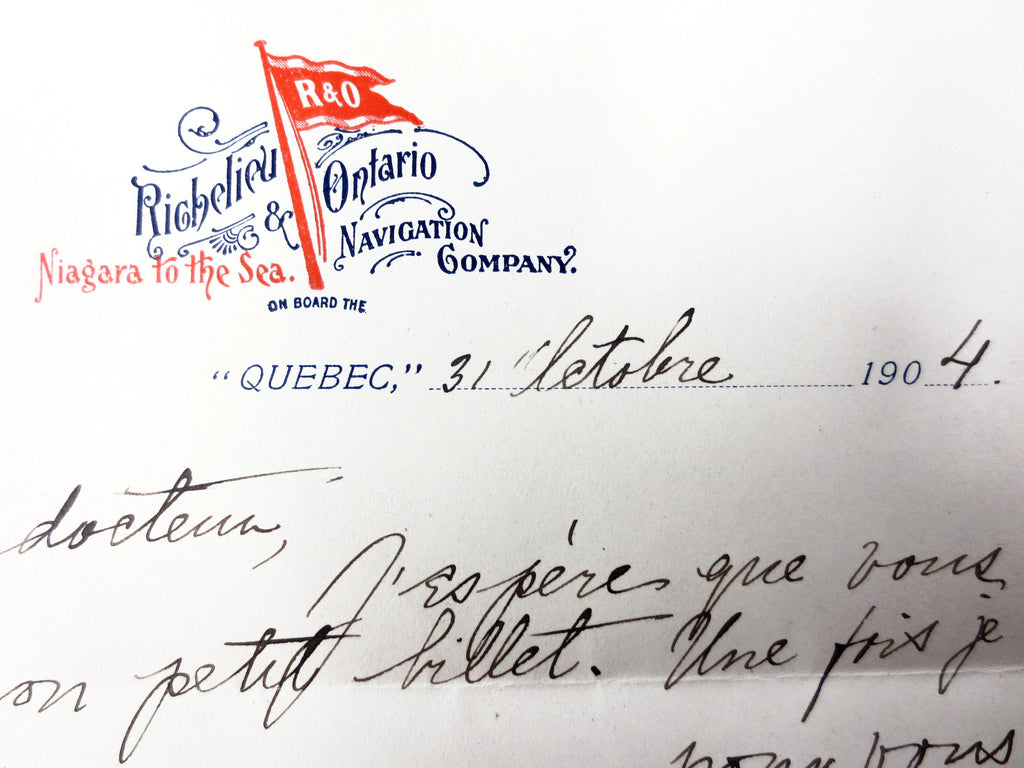 R&O
Richelieu & Ontario
Navigation
Company.
Niagara to the Sea.
ON BOARD THE
"QUEBEC," 31 Octobre 1904.
docteur,
J'espère que vous
on petit billet. Une fois je
pour vous